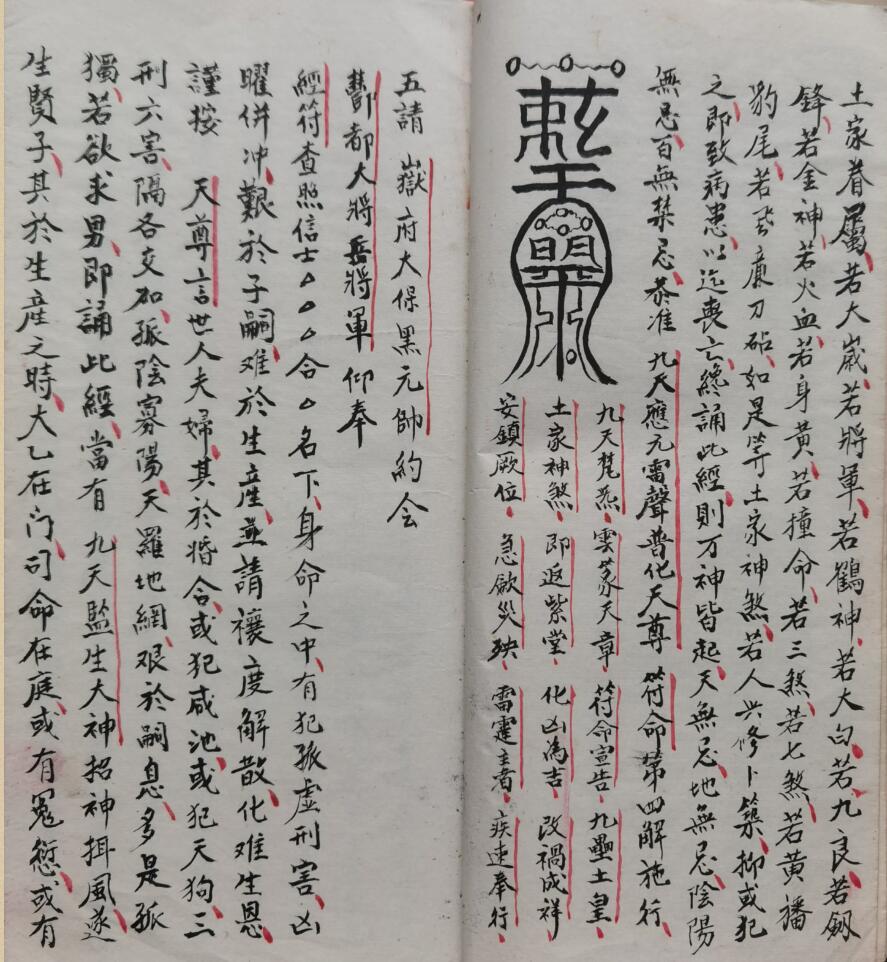 土家眷屬若大歲若將軍若鶴神若大白若九良若劔
鋒若金神若火血若身黄若撞命若三煞若七煞若黄旛
豹尾若飛廉刀砧如是等土家神煞若人興修卜築抑或犯
之即致病患以迄喪亡纔誦此經則万神皆起天無忌地無忌陰陽
無忌百無禁忌恭准 九天應元雷聲普化天尊 符命第四解施行
九天梵炁雲篆天章符命宣告九壘土皇
土家神煞即返紫堂化凶為吉改禍成祥
安鎮厥位急歛災殃雷霆主者疾速奉行
五請 嶽府大保黑元帥約会
酆都大將岳將軍仰奉
經符查照信士△△△合△名下身命之中有犯孤虛刑害凶
曜併冲艱於子嗣难於生產並請禳度解散化难生恩
謹按 天尊言世人夫婦其於婚合或犯咸池或犯天狗三
刑六害隔各交加孤陰寡陽天羅地網艰於嗣息多是孤
獨若欲求男即誦此經當有 九天監生大神招神揖風遂
生賢子其於生產之時大乙在门司命在庭或有冤愆或有